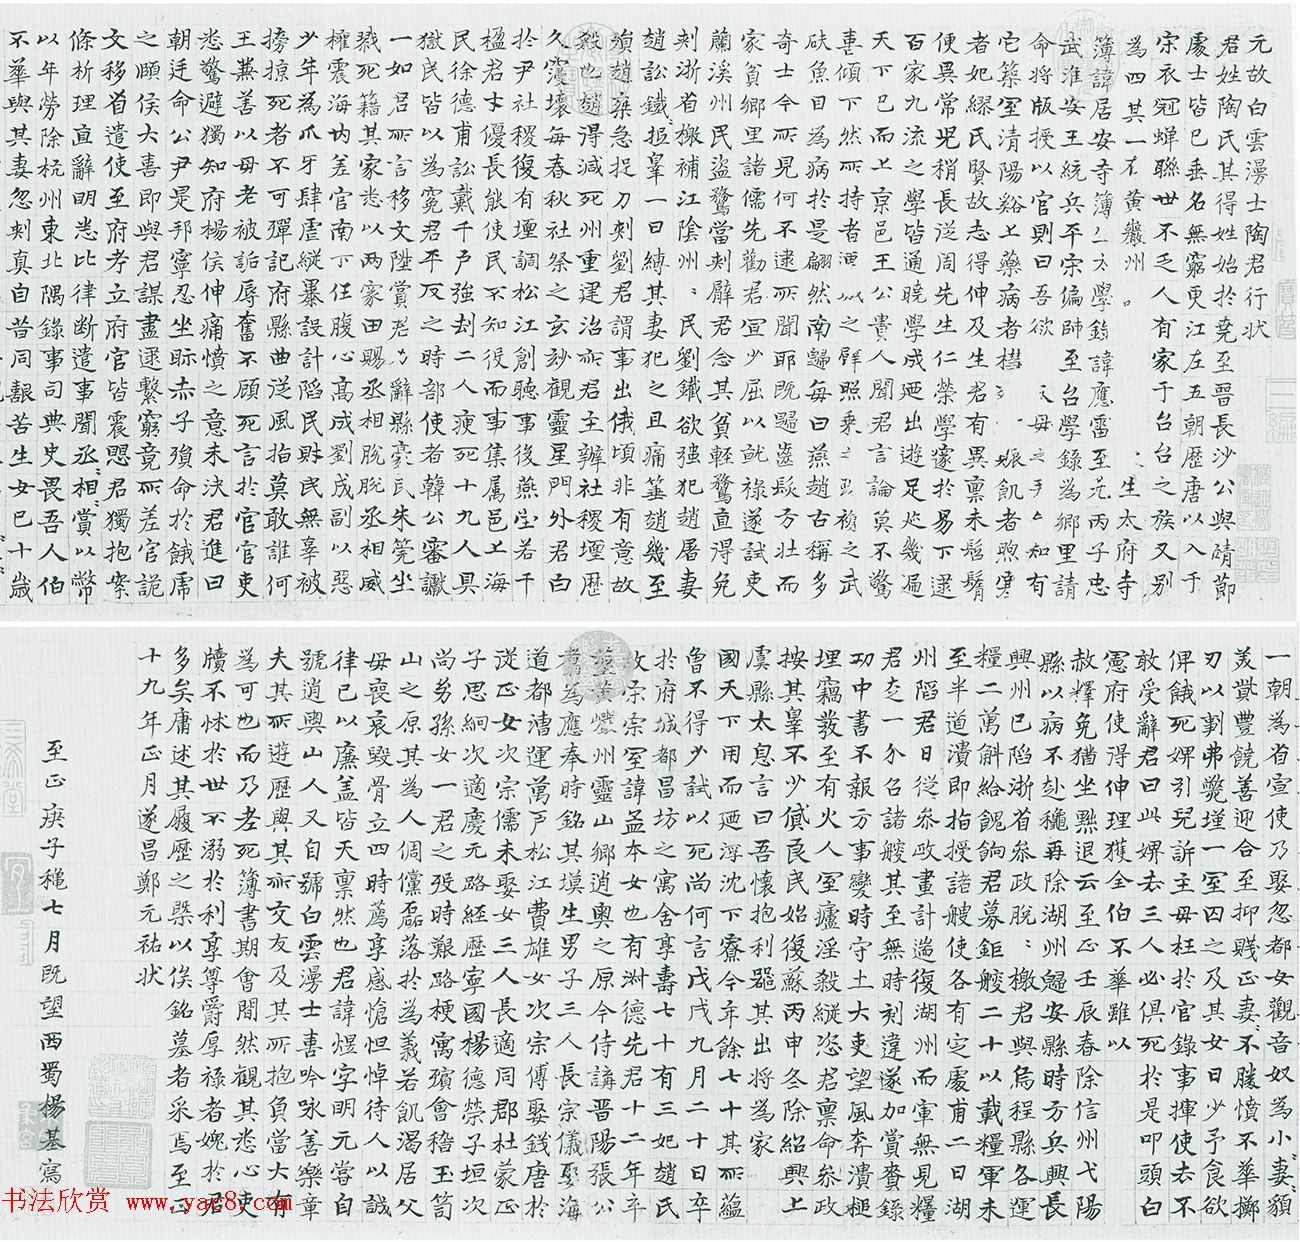 元故白雲漫士陶君行狀
君姓陶氏其得姓始於堯至晉長沙公與靖節
處士皆已垂名無窮更江左五朝歷唐以入于
宗衣冠蟬聯世不乏人有家于台台之族又別
為四其一在黃巖州生太府寺
簿諱居安寺簿太學錄諱應雷至元丙子忠
武淮安王統兵平宗偏師至台學錄為鄉里請
命將版授以官則曰吾欲毋知有
它築室清陽谿上藥病者飢者喣寒
者妃繆氏賢故志得伸及生君有異稟未髫齓
便異常兒稍長從周先生仁榮學邃於易下逮
百家九流之學皆通曉學成迺出遊足迹幾遍
天下已而上京邑王公貴人聞君言論莫不驚
喜傾下然所持者照乘之武
砆魚目為病於是翩然南歸每曰燕趙古稱多
奇士今所見何不逮所聞耶既歸齒髮方壯而
家貧鄉里諸儒先勸君宜少屈以就祿遂試吏
蘭溪州民盜鶩當刺臂君念其貧輕鶩直得免
刺浙省檄補江陰州民劉鐵欲強犯趙屠妻
趙訟鐵拒辠一日縛其妻犯之且痛箠趙幾至
殞趙棄急捉刀刺劉君謂事出俄頃非有意故
殺也趙得減死州重建治所君主辦社稷壇歷
久壞每春秋社祭之玄妙觀靈星門外君白
於尹社稷復有壇調松江創聽事後燕堂若干
楹君才優長能使民不知役而事集属邑上海
民徐德甫訟戴千戶強刦二人瘐死十九人具
獄民皆以為冤君平反之時部使者韓公審讞
一如君所言移文陞賞君辭縣豪民朱筦坐
戮死籍其家悉以两豪田賜丞相脫脫丞相威
權震海内差官南下任腹心高成劉成副以惡
少年為爪牙肆虐縱暴設計䧟民財民無辜被
搒掠死者不可殫記府縣曲從風指莫敢誰何
王燕善以毋老被詬辱奮不顧死言於官官吏
悉驚避獨知府楊侯伸痛憤之意未決君進曰
朝廷命公尹是邦寧忍坐眎赤子殞命於餓虎
之頤侯大喜即與君謀盡逮繫窮竟所差官詭
文移省遣使至府考立府官皆震慴君獨抱案
條析理直辭明悉比律断遣事聞丞相賞以幣
以年勞除杭州東北隅錄事司典史畏吾人伯
不華與其妻忽刺真自昔同艱苦生女已十歲
一朝為省宣使乃娶忽都女觀音奴為小妻貌
美貲豐饒善迎合至抑賤正妻不勝憤不華擲
刃以剚弗斃墐一室囚之及其女日少予食欲
俾餓死婢引兒訴主毋枉於官錄事揮使去不
敢受辭君曰此婢去三人必俱死於是叩頭白
憲府使得伸理獲全伯不華雖以
赦釋免猶坐黜退云至正壬辰春除信州弋陽
縣以病不赴穐再除湖州歸安縣時方兵興長
興州已䧟浙省叅政脫檄君與烏程縣各運
糧二萬斛給餽餉君募鉅艘二十以載糧軍未
至半道潰即指授諸艘使各有定處甫二日湖
州䧟君日從叅政畫計遄復湖州而軍無見糧
君一介召諸艘其至無時刻違遂加賞賚錄
功中書不報方事變時守土大吏望風奔潰極
埋竊發至有火人室廬淫殺縱恣君稟命叅政
按其辠不少貸良民始復蘇丙申冬除紹興上
虞縣太息言曰吾懷抱利器其出將為家
國天下用而廼浮沈下寮今年餘七十其所蘊
曾不得少試以死尚何言戊戌九月二十日卒
於府城都昌坊之寓舍享壽七十有三妃趙氏
故宗宗室諱孟本女也有淑德先君十二年卒
塟黃巖州靈山鄉逍輿之原今侍講晉陽張公
翥為應奉時銘其墓生男子三人長宗儀娶海
道都漕運萬戶松江費雄女次宗傳娶錢唐於
從正女次宗儒未娶女三人長適同郡杜蒙正
子思絅次適慶元路經歷寧國楊德榮子垣次
尚㓜孫女一君之歿時艱路梗寓殯會稽玉笥
山之原其為人倜儻磊落於為義若飢渴居父
毋喪哀毀骨立四時薦享感愴怛悼待人以誠
律已以廉盖皆天稟然也君諱煜字明元甞自
號逍輿山人又自號白雲漫士善吟咏善樂章
夫其所遊歷與其所交友及其所抱負當大有
為可也而乃老死簿書期會間然觀其悉心吏
牘不怵於世不溺於利享尊爵厚祿者媿於君
多矣庸述其履歷之槩以俟銘墓者采焉至正
十九年正月遂昌鄭元祐状
至正庚子穐七月既望西蜀楊基寫
书法欣赏 www.yac8.com